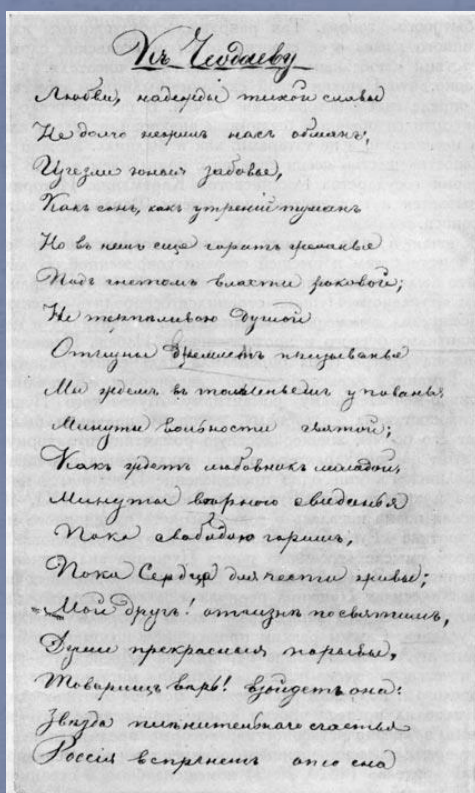 Къ Чеодаеву
Любви, надежды тихой славы
Не долго нежилъ насъ обманъ,
Изчезли юныя забавы,
Какъ сонъ, какъ утрений туманъ
Но въ насъ еще горитъ желанье
Подъ гнетомъ власти роковой;
Не терпеливою душой
Отчизны внемлетъ призыванье
Мы ждемъ въ томленьемъ упованья
Минуты вольности святой;
Какъ ждетъ любовникъ младой,
Минуты верного свиданья
Пока свободою горимъ,
Пока Сердца для чести живы;
Мой другъ! отчизне посвятимъ,
Души прекрасныя порывы,
Товарищъ верь! взойдетъ она:
Звезда пленительнаго счастья
Россия вспрянетъ ото сна